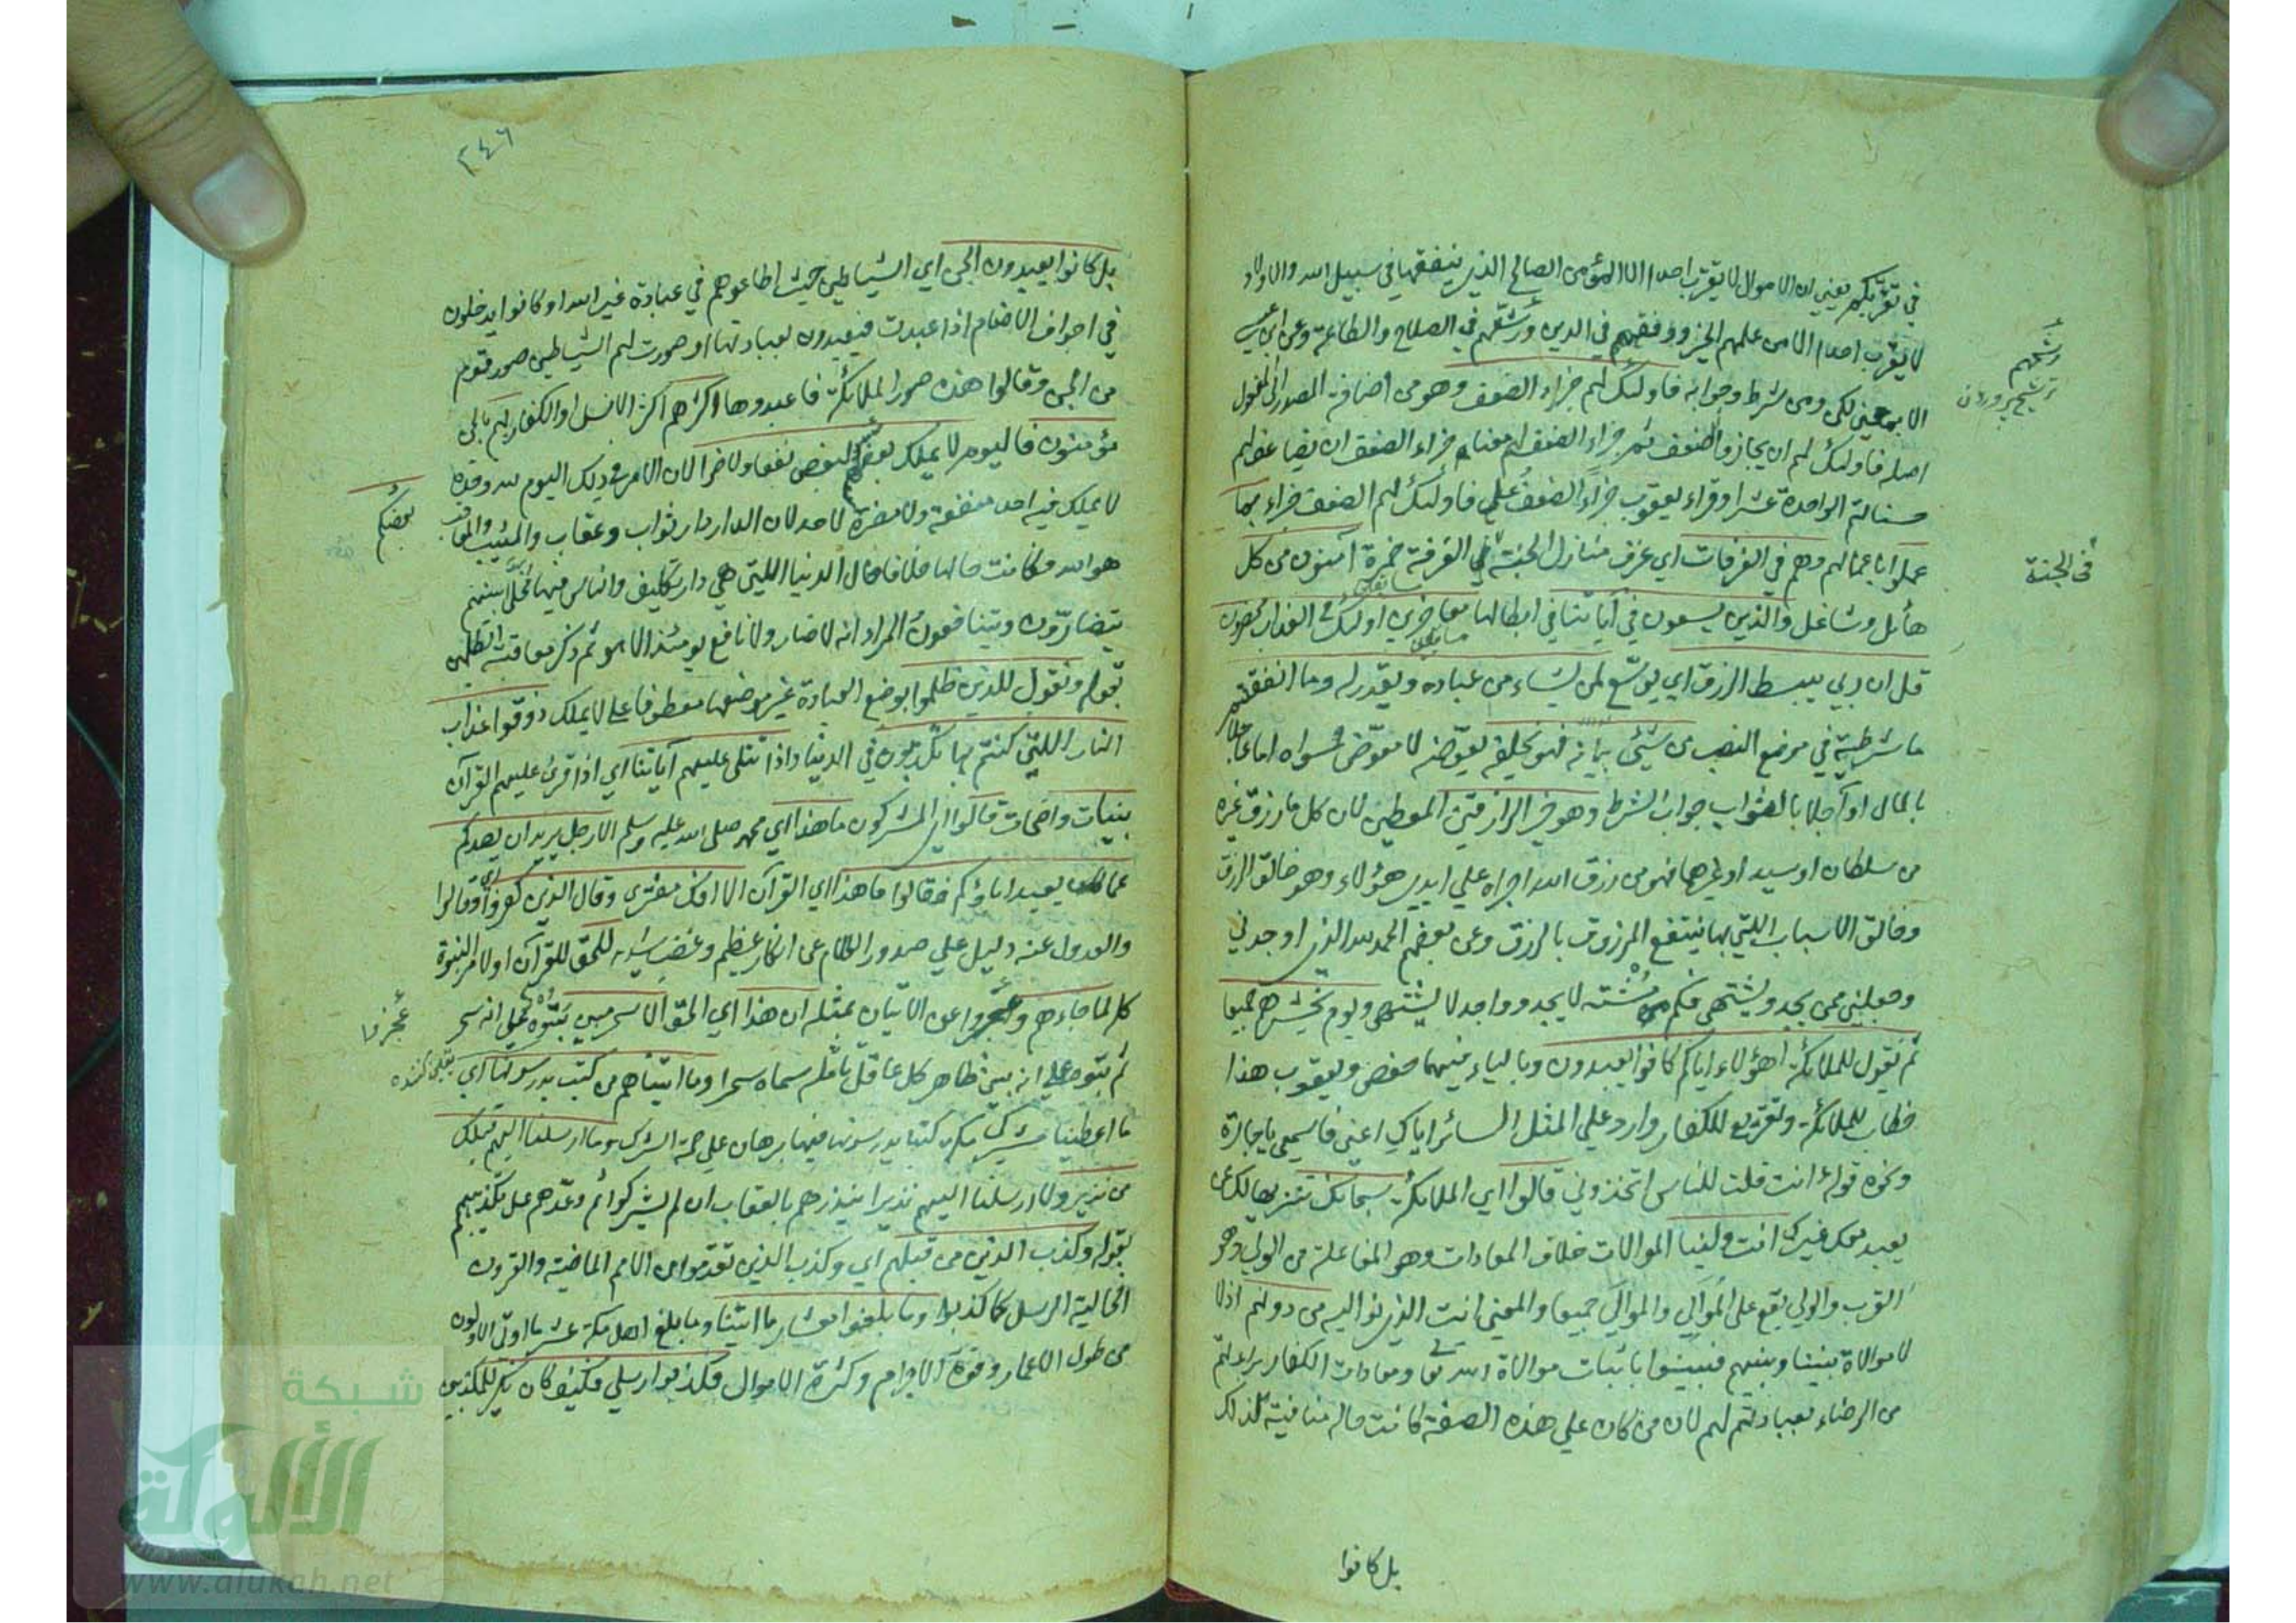 في تقربكم يعني ان الاموال لا تقرب احدا الا المؤمن الصالح الذي ينفقها في سبيل الله والاولاد
لا يقرب احدا الا من علمهم الخير وفقههم في الدين ورشحهم في الصلاح والطاعة وعن ابن عيسى
الا بمعني لكن ومن شرط وجوابه فاولئك لهم جزاء الضعف وهو من اضافة المصدر الى المفعول
اصله فاولئك لهم ان يجازوا الضعف ثم جزاء الضعف ثم جزاء الضعف ومعناه جزاء الضعف ان يضاعف لهم
حسناتهم الواحدة عشرا وقراء يعقوب جزاءً الضعفُ علي فاولئك لهم الضعف جزاء بما
عملوا باعمالهم وهم في الغرفات اي غرف منازل الجنة في الغرفة حمزة آمنون من كل
هائل وشاغل والذين يسعون في آياتنا في ابطالها معاجزين اولئك في العذاب محضرون
قل ان ربي يبسط الرزق اي يوسّع لمن يشاء من عباده ويقدر له وما انفقتم
ما شرطية في موضع النصب من شئ بيانه فهو يخلفه يعوّضه لا معوّض سواه اما عاجلا
بالمال او آجلا بالثواب جواب الشرط وهو خير الرازقين المعطين لان كل ما رزق غيره
من سلطان او سيد او غيرهما فهو من رزق الله اجراه علي ايدي هؤلاء وهو خالق الرزق
وخالق الاسباب اللتي بها ينتفع المرزوق بالرزق وعن بعضهم الحمد لله الذي اوجدني
وجعلني ممن يجد ويشتهى فكم من مشتهٍ لا يجد وواجد لا يشتهى ويوم نحشرهم جميعا
ثم نقول للملائكة اهؤلاء اياكم كانوا يعبدون وبالياء فيهما حفص ويعقوب هذا
خطاب للملائكة وتقريع للكفار وارد علي المثل السائر اياك اعني فاسمعي يا جارة
ونحوه قوله ءانت قلت للناس اتخذوني قالوا اي الملائكة سبحانك تنزيها لك عن
يعبد معك غيرك انت ولينا الموالات خلاف المعادات وهو المفاعلة من الولي وهو
القرب والولي يقع على المُوالِي والموالَي جميعا والمعني انت الذي نواليه من دونهم اذ لا
لا موالاة بيننا وبينهم فبينوا باثبات موالاة الله تعالي ومعادات الكفار براءتهم
من الرضاء بعبادتهم لهم لان من كان علي هذه الصفة كانت حاله منافية لذلك
ورشحهم
ترشيح پروردن
في الجنة
مسابقين
بل كانوا
٢٤٦
بل كانوا يعبدون الجن اي الشياطين حيث اطاعوهم في عبادة غير الله او كانوا يدخلون
في اجواف الاصنام اذا عبدت فيعبدون بعبادتها او صورت لهم الشياطين صور قوم
من الجن وقالوا هذه صور الملائكة فاعبدوها اكثرهم اكثر الانس او الكفار بهم بالجن
مؤمنون فاليوم لا يملك بعضكم لبعض نفعا ولا ضرا لان الامر في ذلك اليوم لله وحده
لا يملك فيه احد منفعة ولا مضرة لاحد لان الدار دار ثواب وعقاب والمثيب والمعاقب
هو الله فكانت حالها خلاف حال الدنيا اللتي هي دار تكليف والناس فيها مخلّى بينهم
يتضارّون ويتنافعون المراد انه لا ضار ولا نافع يومئذ الا هو ثم ذكر معاقبته الظالمين
بقوله ونقول للذين ظلموا بوضع العبادة غير موضعها معطوف على لا يملك ذوقوا عذاب
النار اللتي كنتم بها تكذبون في الدنيا واذا تتلى عليهم آياتنا اي اذا قرئ عليهم القرآن
بينات واضحات قالوا اي المشركون ما هذا اي محمد صلى الله عليه وسلم الا رجل يريد ان يصدكم
عما كان يعبد اباؤكم وقالوا ما هذا اي القرآن الا افك مفترى وقال الذين كفروا اي وقالوا
والعدول عنه دليل علي صدور الكلام عن انكار عظيم وغضب شديد للحق للقرآن او لامر النبوة
كله لما جاءهم وعجزوا عن الاتيان بمثله ان هذا اي الحق الا سحر مبين بتّوه على انه سحر
ثم بتّوه على انه بيّن ظاهر كل عاقل تأمله سماه سحرا وما اتيناهم من كتب يدرسونها اي
ما اعطينا مشركي مكة كتبا يدرسونها فيها برهان علي صحة الشرك وما ارسلنا اليهم قبلك
من نذير ولا ارسلنا اليهم نذيرا ينذرهم بالعقاب ان لم يشركوا ثم وعّدهم على تكذيبهم
بقوله وكذب الذين من قبلهم اي وكذب الذين تقدموا من الامم الماضية والقرون
الخالية الرسل كما كذبوا وما بلغوا معشار ما اتينا وما بلغ اهل مكة عشر ما اوتي الاولون
من طول الاعمار وقوة الاجرام وكثرة الاموال فكذبوا رسلي فكيف كان نكير للمكذبين
بعضكم
عجزوا
شبكة
الألوكة
www.alukah.net